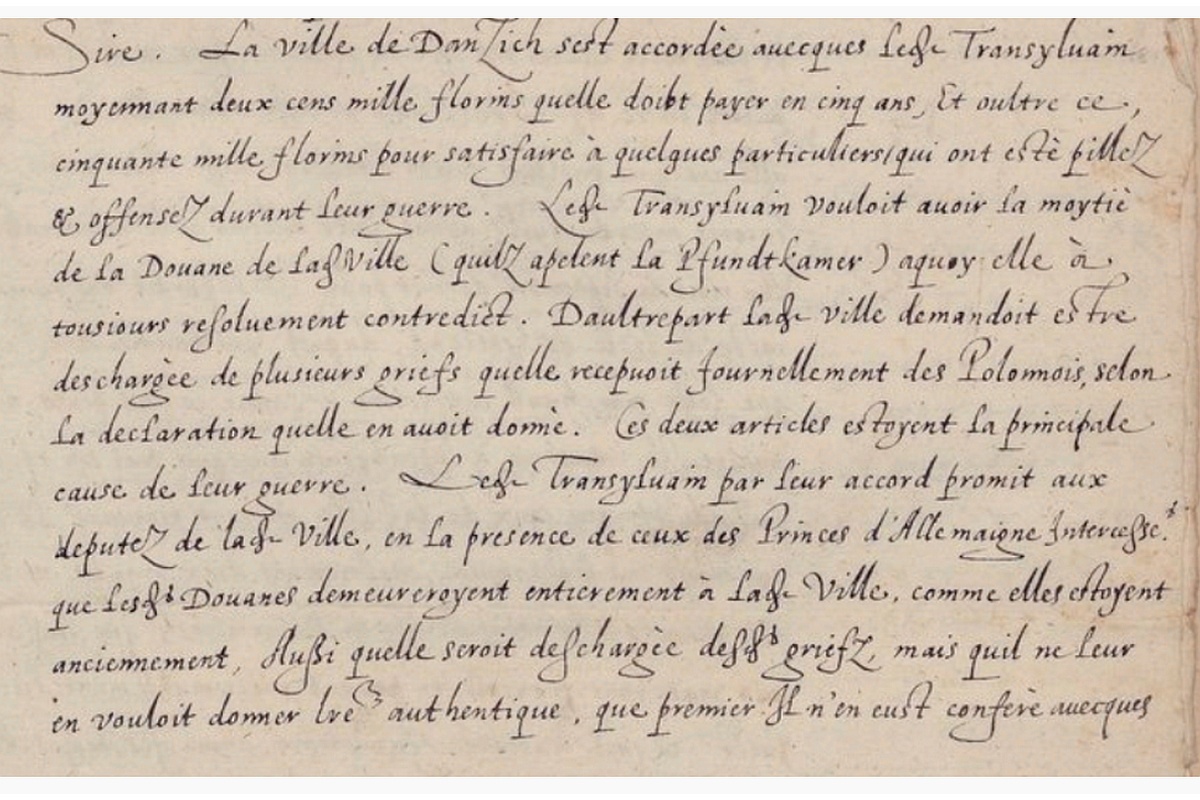 Sire. La ville de Danzich sest accordée avecques Led. Transyluain
moyennant deux cens mille florins quelle doibt payer en cinq ans, Et oultre ce,
cinquante mille florins pour satisfaire à quelques particuliers, qui ont esté pillez
& offensez durant leur guerre. Led. Transyluain vouloit auoir la moytié
de la Douane de lad. Ville (quilz apelent la Pfundtkamer) aquoy elle à
tousiours resoluement contredict. Daultrepart lad. ville demandoit estre
deschargée de plusieurs griefs quelle recepuoit Journellement des Polonnois, selon
la declaration quelle en auoit donné. Ces deux articles estoyent la principale
cause de leur guerre. Led. Transyluain par leur accord promit aux
deputez de lad. Ville, en la presence de ceux des Princes d'Allemaigne Intercess.rs
que lesd.s Douanes demeureroyent entierement à lad. Ville, comme elles estoyent
anciennement, Aussi quelle seroit deschargée desd.s griefz, mais quil ne leur
en vouloit donner lre authentique, que premier Il n'en eust conferé auecques